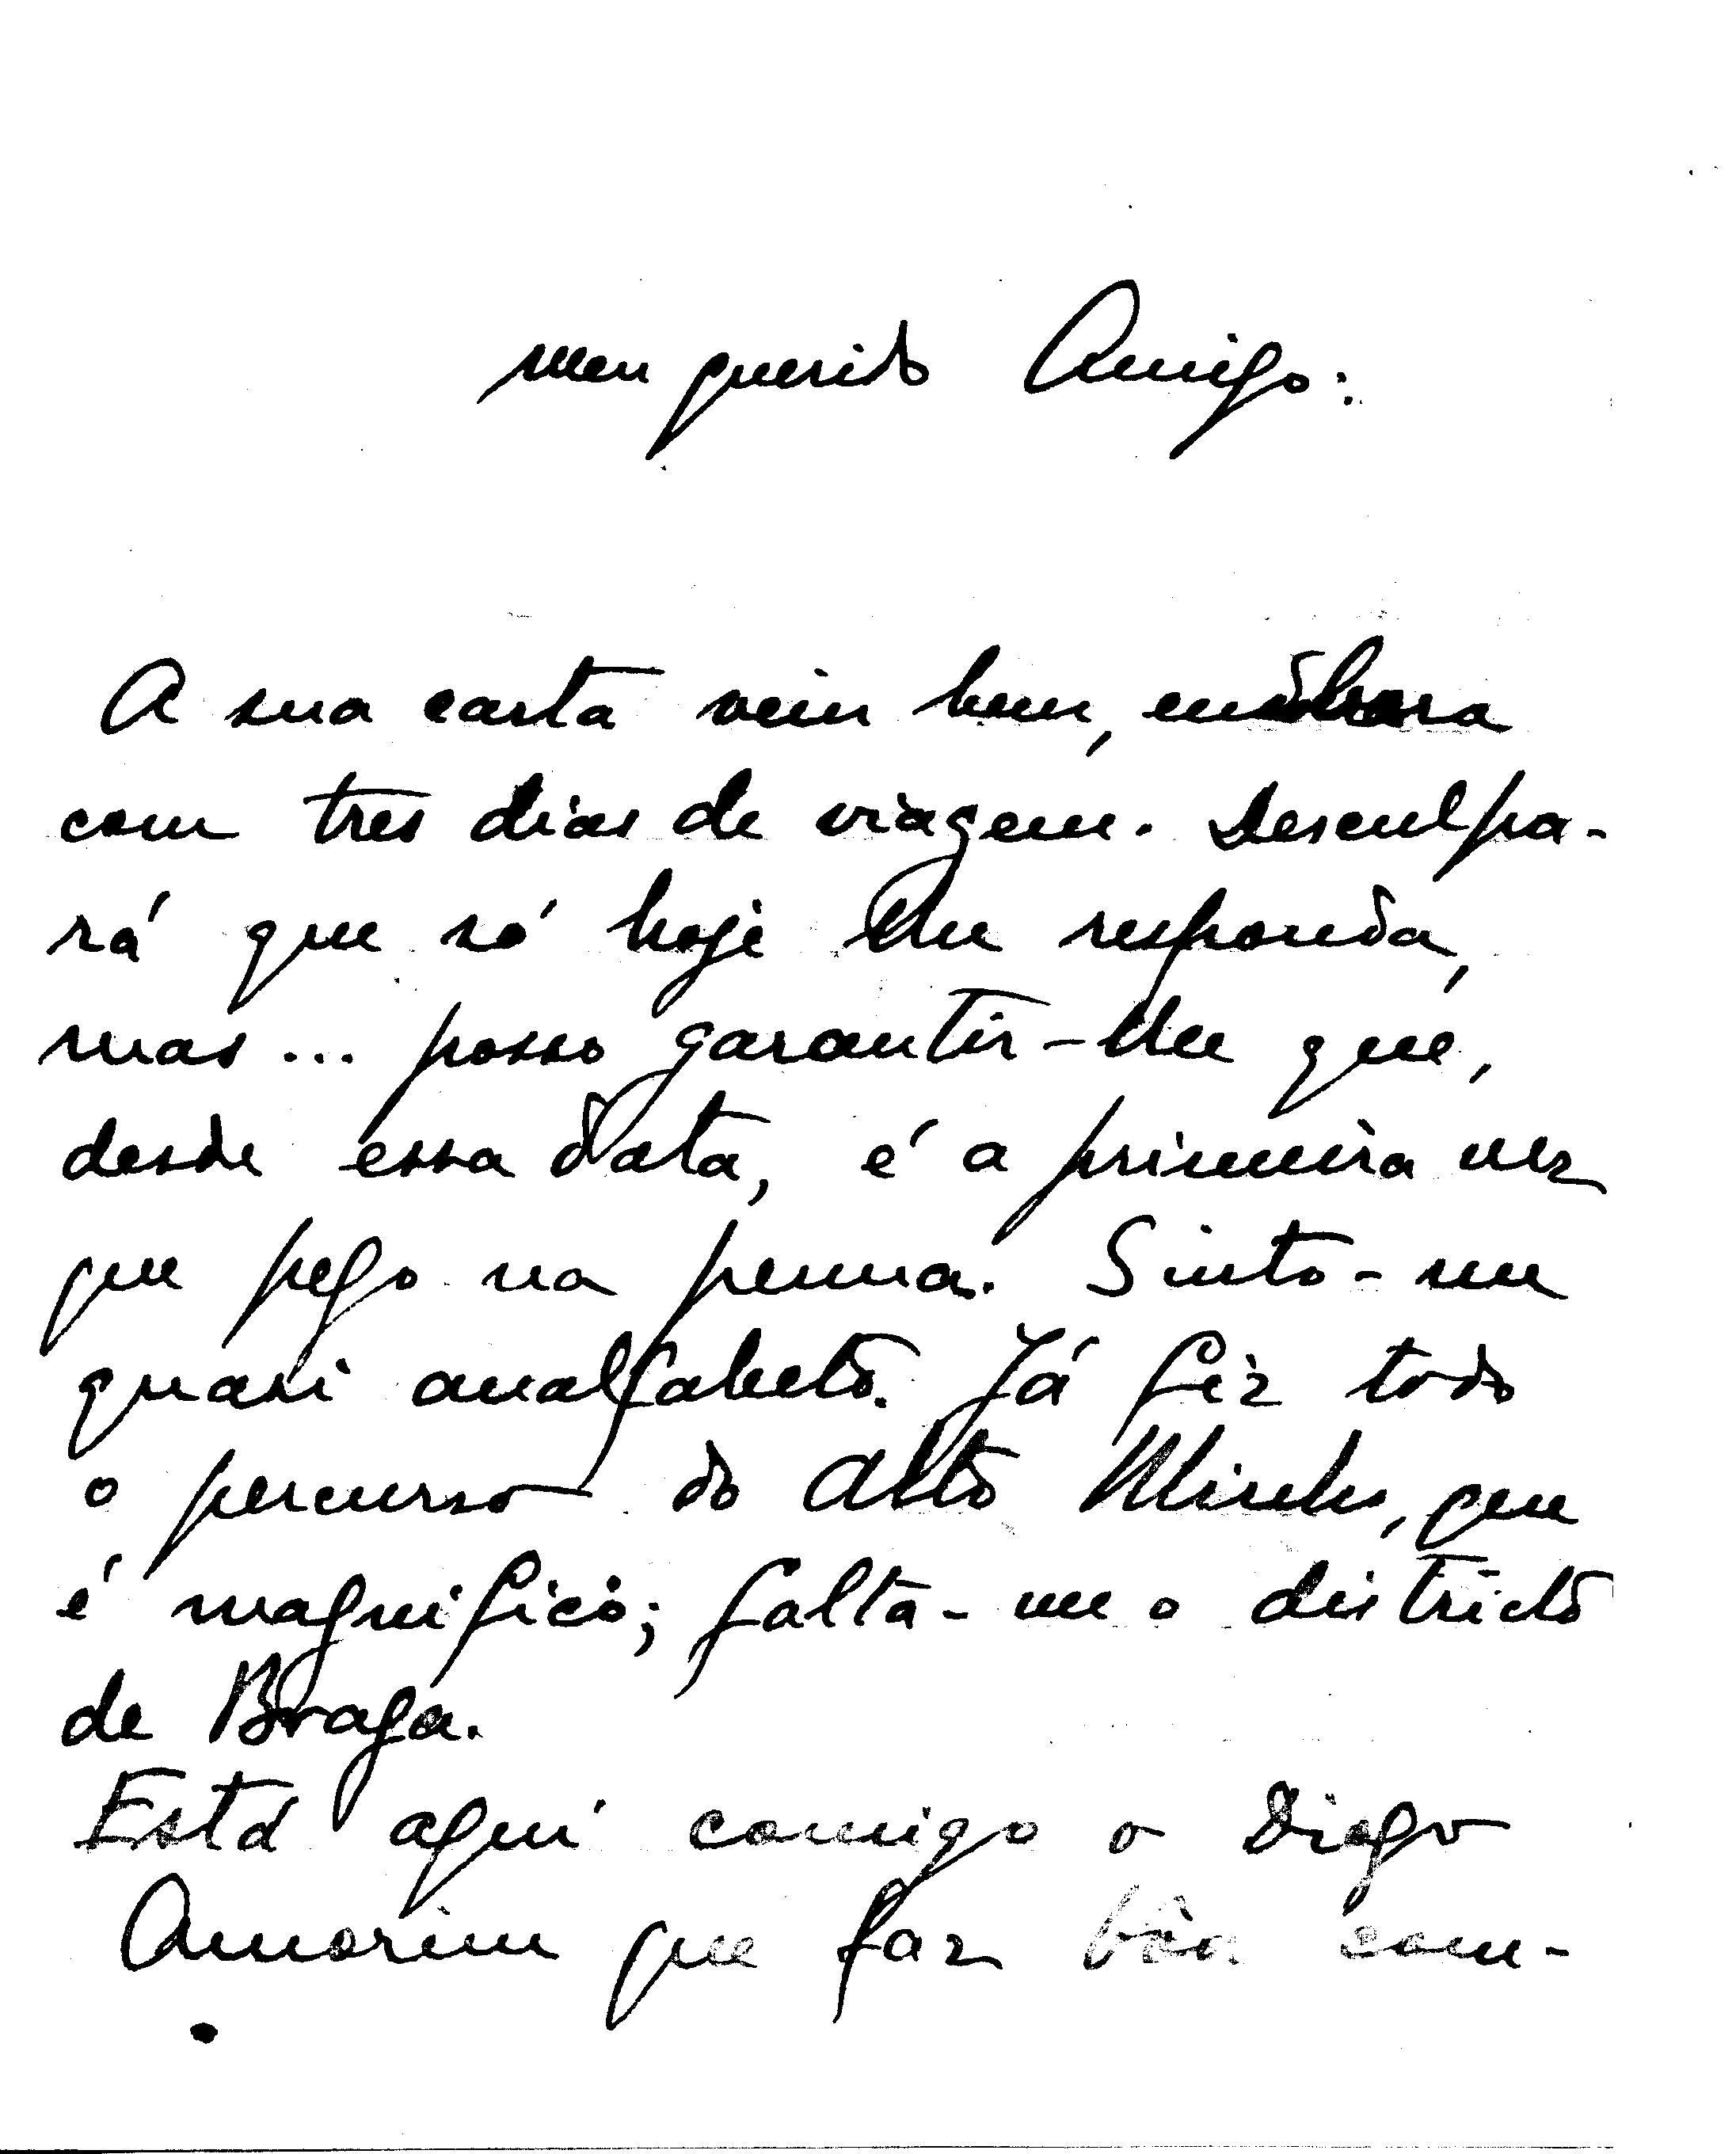 Meu querido Amigo:
A sua carta veiu bem, embora
com tres dias de viagem. Desculpa-
rá que só hoje lhe responda,
mas... posso garantir-lhe que,
desde essa data, é a primeira vez
que pego na penna. Sinto-me
quasi analfabeto. Já fiz todo
o percurso do Alto Minho, que
é magnifico; falta-me o districto
de Braga.
Está aqui comigo o Diogo
Amorim que faz bôa com-